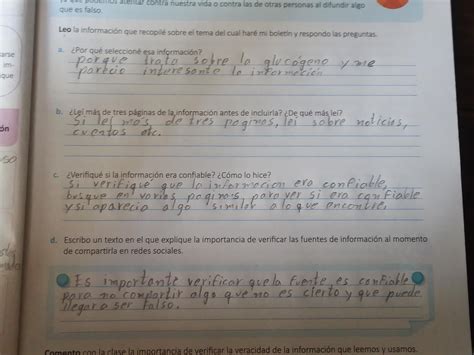 podemos atentar contra nuestra vida o contra las de otras personas al difundir algo
que es falso.
Leo la información que recopilé sobre el tema del cual haré mi boletín y respondo las preguntas.
a. ¿Por qué seleccioné esa información?
porque trata sobre la glucógeno y me
parecio interesante la información
b. ¿Leí más de tres páginas de la información antes de incluirla? ¿De qué más leí?
Si lei mas de tres paginas, lei sobre noticias,
cuentos etc.
c. ¿Verifiqué si la información era confiable? ¿Cómo lo hice?
si verifique que la informacion era confiable,
busque en varias paginas, para ver si era confiable
y si aparecia algo similar a lo que encontre.
d. Escribo un texto en el que explique la importancia de verificar las fuentes de información al momento
de compartirla en redes sociales.
Es importante verificar que la fuente es confiable
para no compartir algo que no es cierto y que puede
llegar a ser falso.
Comento con la clase la importancia de verificar la veracidad de la información que leemos y usamos.
arse
im-
que
ón